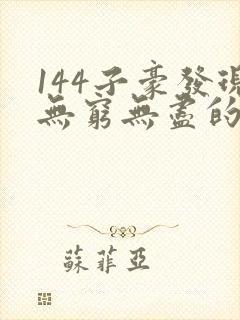 144子豪發現
無窮無盡的
蘇菲亞